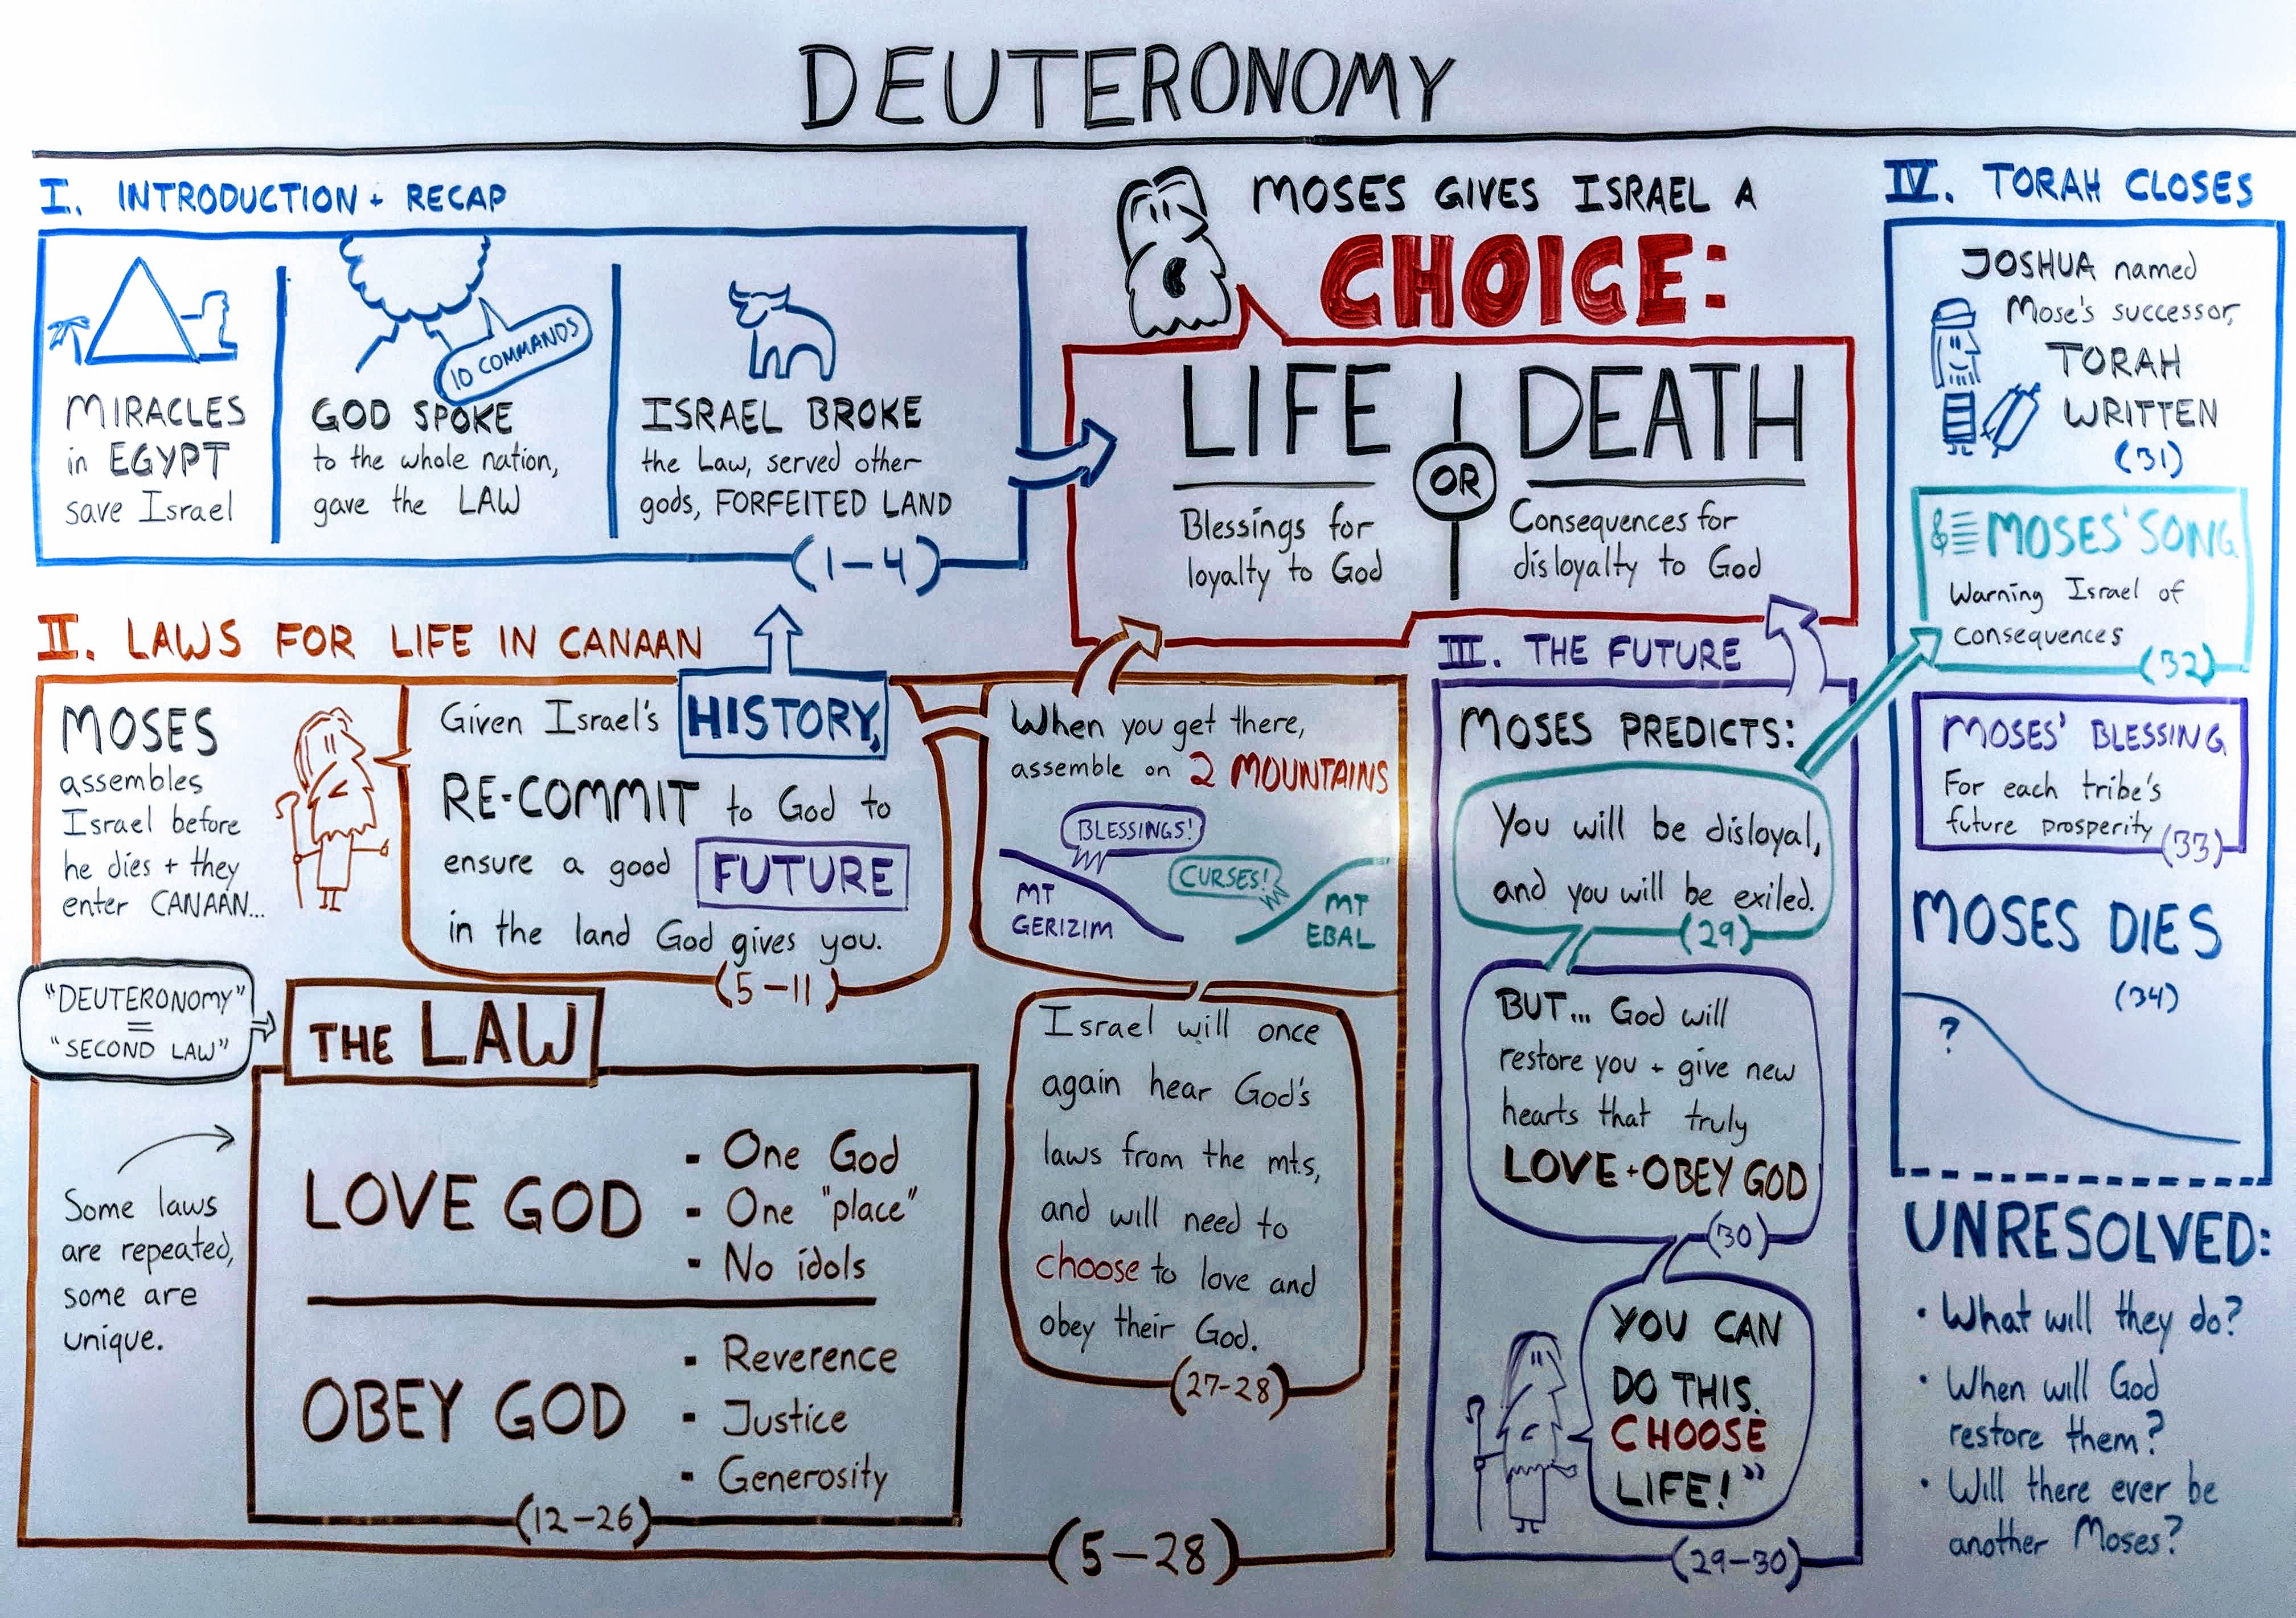 DEUTERONOMY
I. INTRODUCTION + RECAP
MIRACLES
in EGYPT
save Israel
10 COMMANDS
GOD SPOKE
to the whole nation,
gave the LAW
ISRAEL BROKE
the Law, served other
gods, FORFEITED LAND
(1-4)
MOSES GIVES ISRAEL A
CHOICE:
LIFE
Blessings for
loyalty to God
OR
DEATH
Consequences for
disloyalty to God
II. LAWS FOR LIFE IN CANAAN
MOSES
assembles
Israel before
he dies + they
enter CANAAN...
Given Israel's HISTORY,
RE-COMMIT to God to
ensure a good FUTURE
in the land God gives you.
(5-11)
"DEUTERONOMY"
=
"SECOND LAW"
THE LAW
Some laws
are repeated,
some are
unique.
LOVE GOD
- One God
- One "place"
- No idols
OBEY GOD
- Reverence
- Justice
- Generosity
(12-26)
When you get there,
assemble on 2 MOUNTAINS
BLESSINGS!
MT
GERIZIM
CURSES!
MT
EBAL
Israel will once
again hear God's
laws from the mts,
and will need to
choose to love and
obey their God.
(27-28)
(5-28)
III. THE FUTURE
MOSES PREDICTS:
You will be disloyal,
and you will be exiled.
(29)
BUT... God will
restore you + give new
hearts that truly
LOVE + OBEY GOD
(30)
YOU CAN
DO THIS.
CHOOSE
LIFE!"
(29-30)
IV. TORAH CLOSES
JOSHUA named
Mose's successor,
TORAH
WRITTEN
(31)
MOSES' SONG
Warning Israel of
consequences
(32)
MOSES' BLESSING
For each tribe's
future prosperity
(33)
MOSES DIES
(34)
?
UNRESOLVED:
• What will they do?
• When will God
restore them?
• Will there ever be
another Moses?